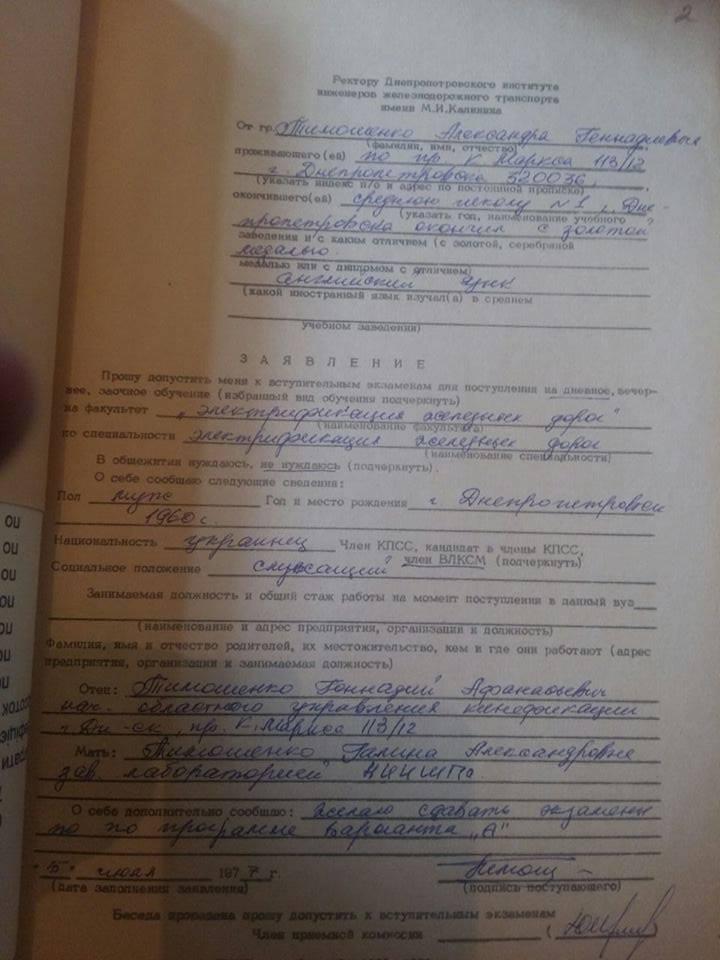 2
Ректору Днепропетровского института
инженеров железнодорожного транспорта
имени М.И.Калинина
От гр. Тимошенко Александра Геннадиевича
(фамилия, имя, отчество)
проживающего(ей) по пр. К. Маркса 113/12
г. Днепропетровска 320036,
(указать индекс п/о и адрес по постоянной прописке)
окончившего(ей) среднюю школу N1 г. Дне-
(указать год, наименование учебного
пропетровска окончил с золотой
заведения и с каким отличием (с золотой, серебряной
медалью.
медалью или с дипломом с отличием)
английский язык
(какой иностранный язык изучал(а) в среднем
учебном заведении)
З А Я В Л Е Н И Е
Прошу допустить меня к вступительным экзаменам для поступления на дневное, вечер-
нее, заочное обучение (избранный вид обучения подчеркнуть)
на факультет „электрификация железных дорог"
(наименование факультета)
по специальности электрификация железных дорог
(наименование специальности)
В общежитии нуждаюсь, не нуждаюсь (подчеркнуть).
О себе сообщаю следующие сведения:
Пол муж Год и место рождения г. Днепропетровск
1960 г.
Национальность украинец Член КПСС, кандидат в члены КПСС,
член ВЛКСМ (подчеркнуть)
Социальное положение служащий
Занимаемая должность и общий стаж работы на момент поступления в данный вуз
(наименование и адрес предприятия, организации и должность)
Фамилия, имя и отчество родителей, их местожительство, кем и где они работают (адрес
предприятия, организации и занимаемая должность)
Отец: Тимошенко Геннадий Афанасьевич
нач. областного управления кинофикации
г. Дн-ск, пр. К. Маркса 113/12
Мать: Тимошенко Галина Александровна
зав. лабораторией
О себе дополнительно сообщаю: желаю сдавать экзамены
по по программе варианта „А"
июля 1977 г.
(дата заполнения заявления) (подпись поступающего)
Беседа проведена прошу допустить к вступительным экзаменам
Член приемной комиссии